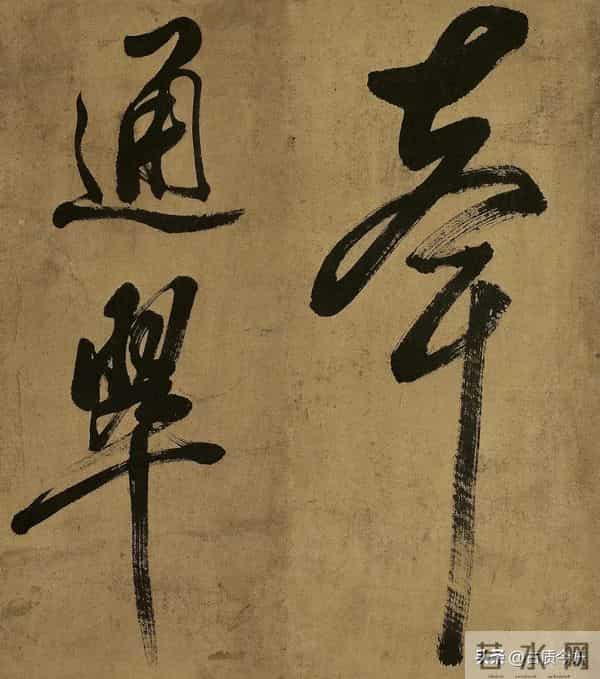 通翠
头条 @古质今妍
若水网